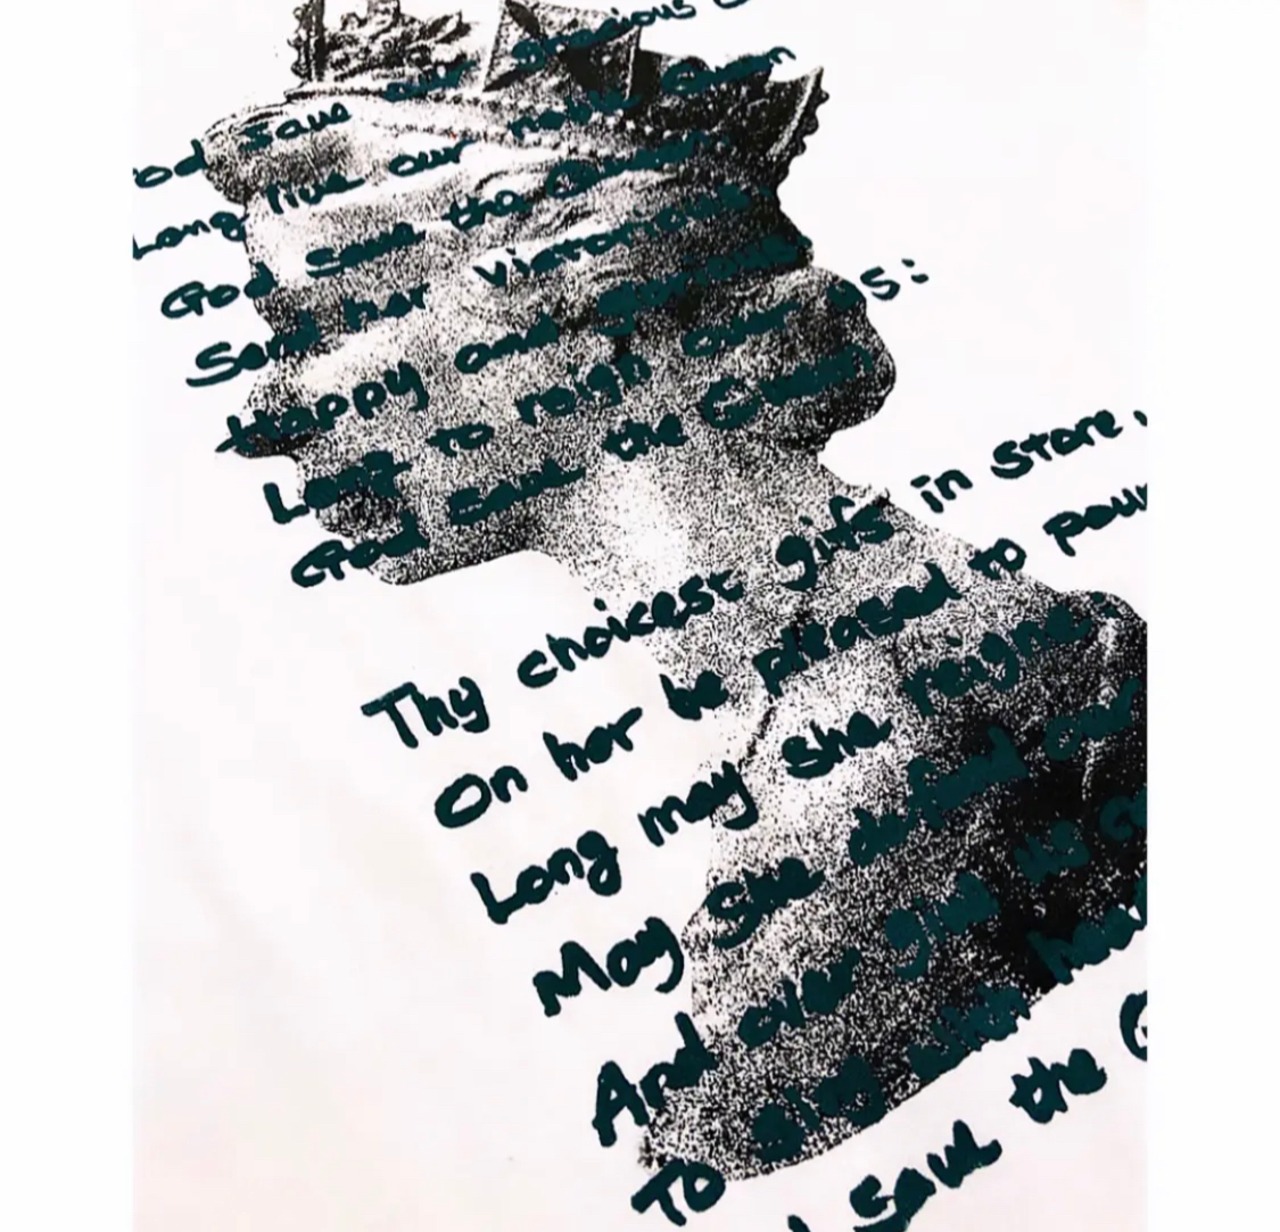 od save our gracious
Long live our noble Queen
God save the Queen
Send her victorious.
Happy and glorious.
Long to reign over us:
God save the Queen
Thy choicest gifs in store,
On her be pleased to pour
Long may she reigne.
May She defend our
And ever give us
To sing with
Save the